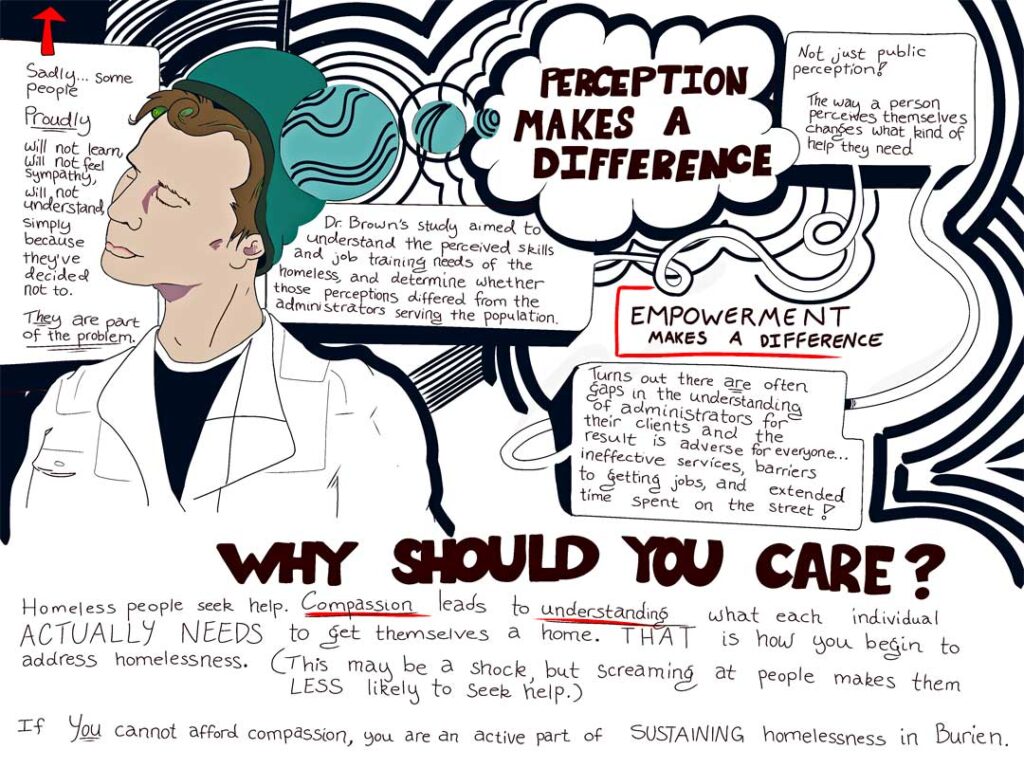 Sadly... some
people
Proudly
will not learn,
will not feel
sympathy,
will not
understand,
simply
because
they've
decided
not to.
They are part
of the problem.
Dr. Brown's study aimed to
understand the perceived skills
and job training needs of the
homeless, and determine whether
those perceptions differed from the
administrators serving the population.
PERCEPTION
MAKES A
DIFFERENCE
Not just public
perception!
The way a person
perceives themselves
changes what kind of
help they need
EMPOWERMENT
MAKES A DIFFERENCE
Turns out there are often
gaps in the understanding
of administrators for
their clients and the
result is adverse for everyone...
ineffective services, barriers
to getting jobs, and extended
time spent on the street!
WHY SHOULD YOU CARE?
Homeless people seek help. Compassion leads to understanding what each individual
ACTUALLY NEEDS to get themselves a home. THAT is how you begin to
address homelessness. (This may be a shock, but screaming at people makes them
LESS likely to seek help.)
If You cannot afford compassion, you are an active part of SUSTAINING homelessness in Burien.